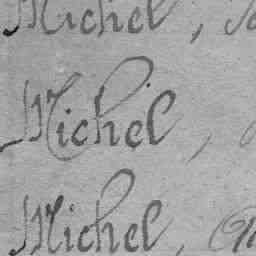 Michel,
Michel,
Michel,